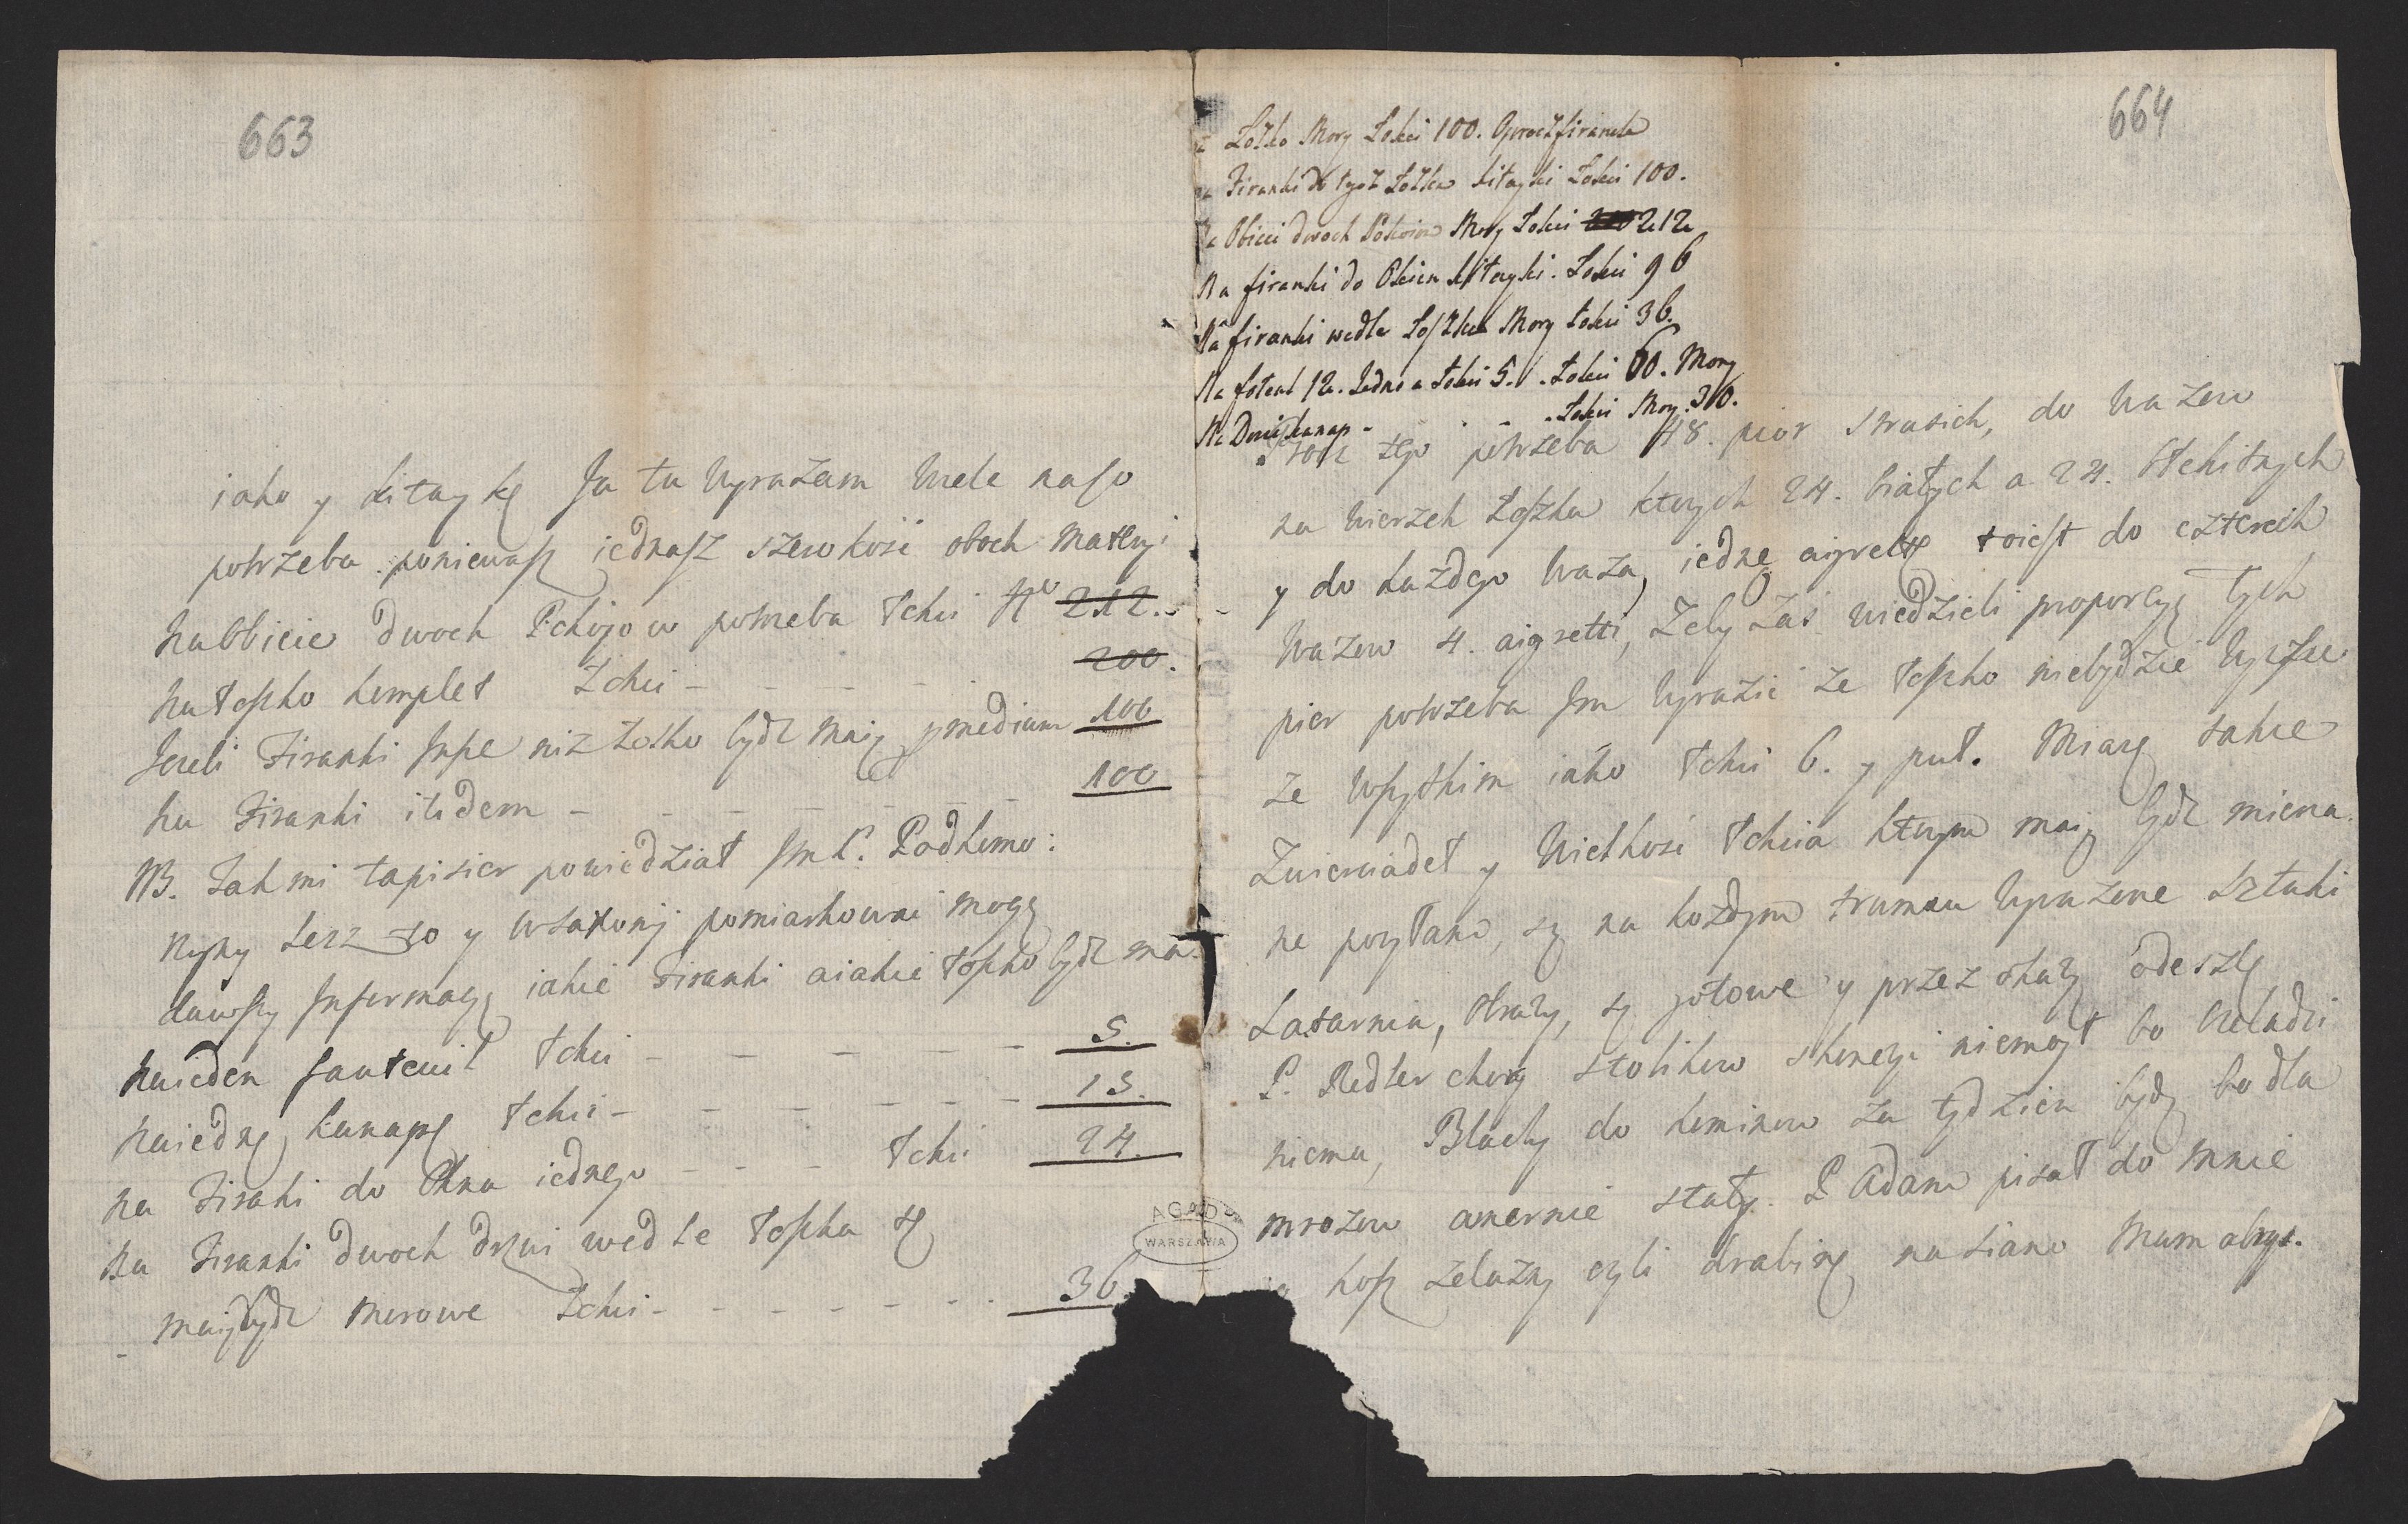 663
iako y kitaykę Ja tu wyrażam wiele na so
potrzeba ponieważ jednasz szerokość oboch materyi
na Obicie dwoch Pokojow potrzeba łokci Nro 212.
200.
na łoszko komplet Łokci - - - -
Jezeli Firanki Insze niz Łosko bydz maią ymedium 100
na Firanki itidem - - - - - 100
NB. Jak mi tapisier powiedział JmP. Podkomo:
rzyny terz to y w Saxonij pomiarkowai mogą
dawszy Informacyą iakie Firanki a iakie łoszko bydz ma.
na ieden fauteuil łokci - - - - - 5.
na iedną kanapę łokci - - - - - - 15.
na Firaki do Okna iednego - - - łokci 24.
na Firanki dwoch drzwi wedle łoszka tę
maią bydz morowe Łokci - - - - - - - 36
664
Łożko Mory Łokci 100. Oprocz firanek
Firanki do tyoż Łożka kitayki Łokci 100.
Na Obicci dwoch Pokoiow Mory Łokci 212
Na firanki do Okien kitayki. Łokci 96
Na firanki wedle Łoszka Mory Łokci 36.
Na foteul 12. Jedno a Łokci 5. . Łokci 60. Mory
Na Dwie kanap - - - . Łokci Mory. 30.
tego potrzeba 48. pior strusich, do wazow
na wierzch łoszka ktorych 24. białych a 24. błękitnych
y do kazdego waza, iedną aigrette toiest do czterech
wazow 4. aigretti, Zeby zas wiedzieli proporcyą tych
pior potrzeba Im wyrazić ze łoszko niebydzie wyzsze
ze wszytkim iako łokci 6. y puł. Miarę takze
Zwierciadeł y Wielkość łokcia ktorym maią bydz mierza.
ne posyłam, są na kozdym trumau wyrazone sztuki
Latarnia, Obrazy, są gotowe y przez okazyą odeszlę
P. Redler chory stolikow skonczyć niemogł bo czeladzi
niema, Blachy do kominow za tydzien bydą bo dla
mrozow amernie stały. P Adam pisał do mnie
o kosz zelazny czyli drabinę na siano Mam abrys.
AGAD
WARSZAWA